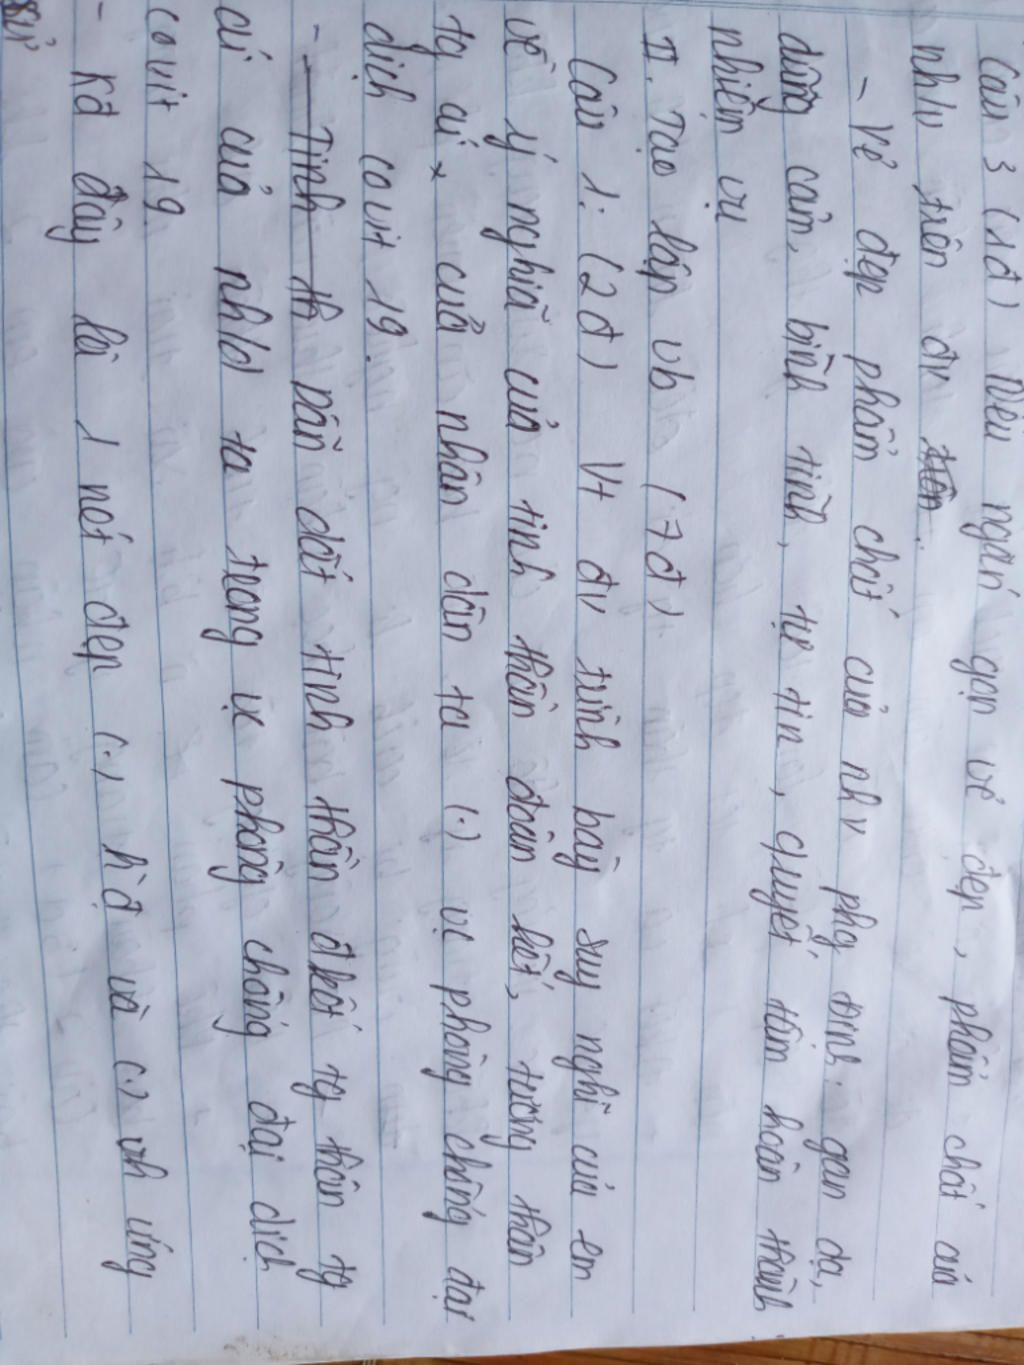 Câu 3 (1đ) Nêu ngắn gọn vẻ đẹp, phẩm chất của
nh/v trên đv
- Vẻ đẹp phẩm chất của nhv phg đmb: gan dạ,
dũng cảm, bình tĩnh, tự tin, quyết tâm hoàn thành
nhiệm vụ
II. Tạo lập vb (7đ)
Câu 1: (2đ) Vt đv trình bày suy nghĩ của em
về ý nghĩa của tinh thần đoàn kết, tương thân
tg ái của nhân dân ta (.) vc phòng chống đại
dịch covit 19.
- Tinh th Dẫn dắt tinh thần đkết tg thân tg
ái của nh/d ta trong vc phòng chống đại dịch
covit 19.
- Kđ đây là 1 nét đẹp (.) h`đ và (.) vh ứng
xử